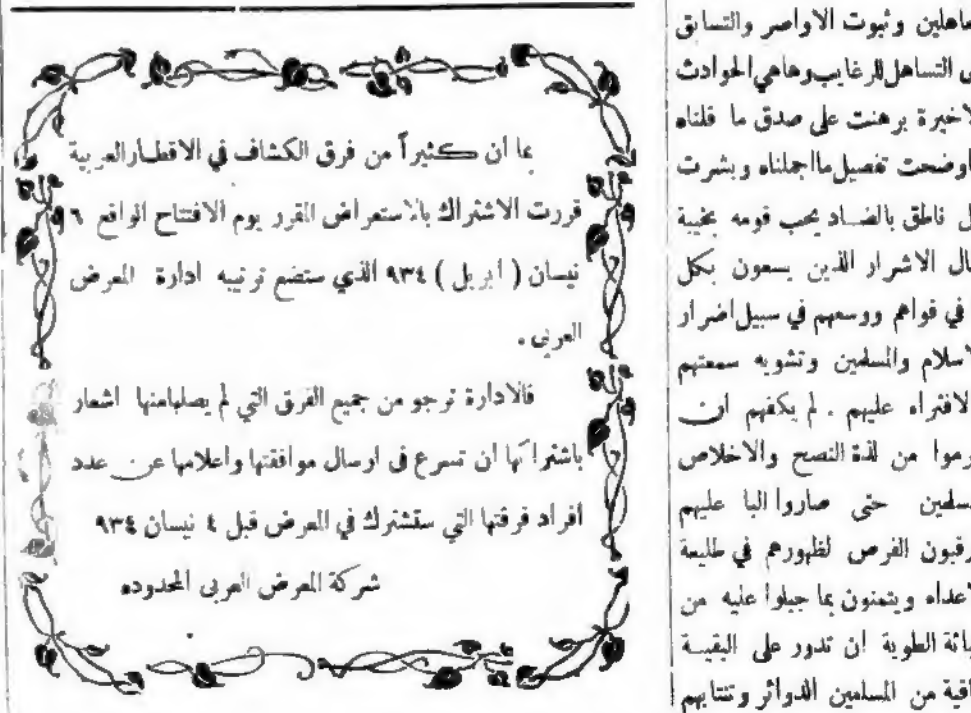 ماهلين وثبوت الاواصر والتسابق
التساهل للرغايب وهاهي الحوادث
لاخيرة برهنت على صدق ما قلناه
اوضحت تفصيل مااجملناه وبشرت
ل ناطق بالضاد يحب قومه بخيبة
ال الاشرار الذين يسعون بكل
في قواهم ووسعهم في سبيل اضرار
لاسلام والمسلمين وتشويه سمعتهم
الافتراء عليهم . لم يكفهم ان
رموا من لذة النصح والاخلاص
سلمين حتى صاروا البا عليهم
رقبون الفرص لظهورهم في طليعة
لاعداء ويتمنون بما جبلوا عليه من
الطوية ان تدور على البقيسة
اقية من المسلمين الدوائر وتنتابهم
بما ان كثيراً من فرق الكشاف في الاقطار العربية
قررت الاشتراك بالاستعراض المقرر يوم الافتتاح الواقع ٦
نيسان ( أبريل ) ٩٣٤ الذي ستضع ترتيبه ادارة المعرض
العربي .
فالادارة ترجو من جميع الفرق التي لم يصلها منها اشعار
باشتراكها ان تسرع في ارسال موافقتها واعلامها عن عدد
افراد فرقتها التي ستشترك في المعرض قبل ٤ نيسان ٩٣٤
شركة المعرض العربي المحدوده